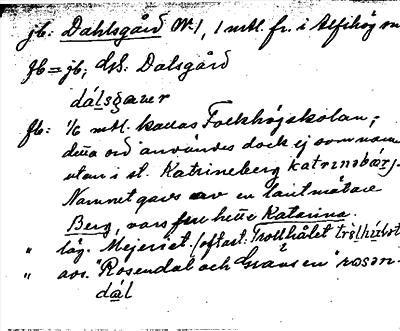 jb: Dahlsgård Nr 1, 1 mtl. fr. i Alfshög sn
fb = jb; Gsk. Dalsgård
dálsgaver
fb: 1/6 mtl. kallas Folkhögskolan;
detta ord användes dock ej som namn
utan i st. Katrineberg katrinəbærj.
Namnet gavs av en lantmätare
Berg, vars fru hette Katarina.
" låg. Mejeriet. /oftast: Trollhålet trólhúlət
" avs. "Rosendal och Gravsen" rosən-
dál